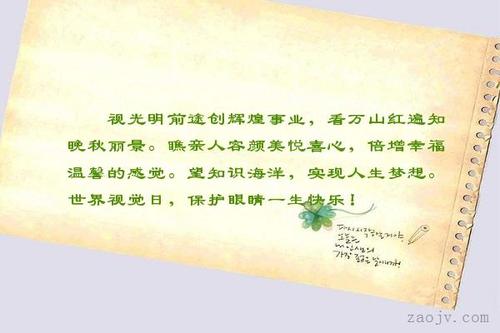 视光明前途创辉煌事业，看万山红遍知
晚秋丽景。瞧亲人容颜美悦喜心，倍增幸福
温馨的感觉。望知识海洋，实现人生梦想。
世界视觉日，保护眼睛一生快乐！
오늘은
내 인생의
가장 젊은 날이니까!
zaojv.com